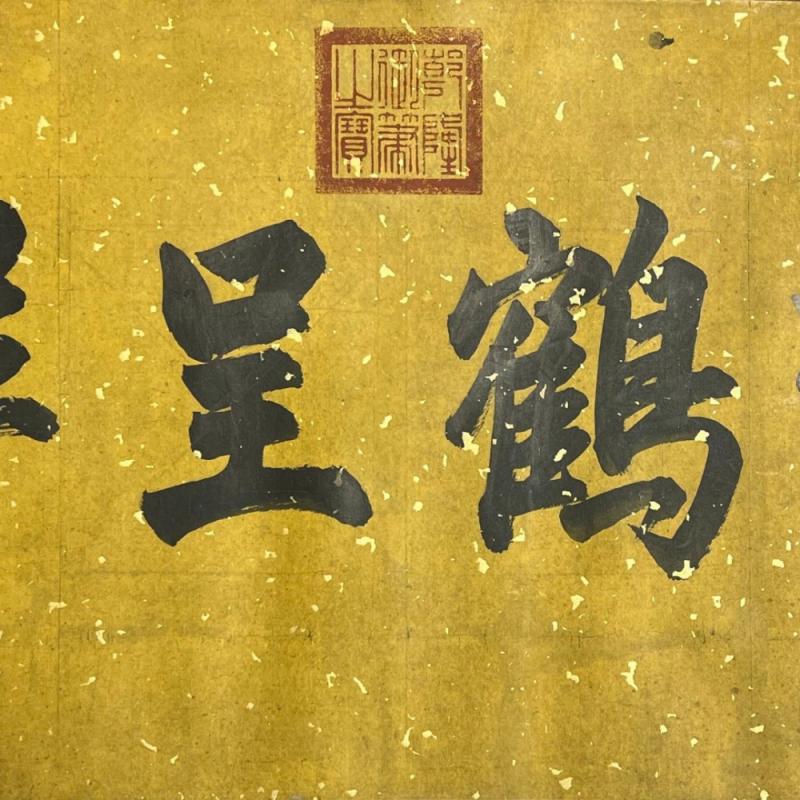 乾隆御筆之寶
鶴呈